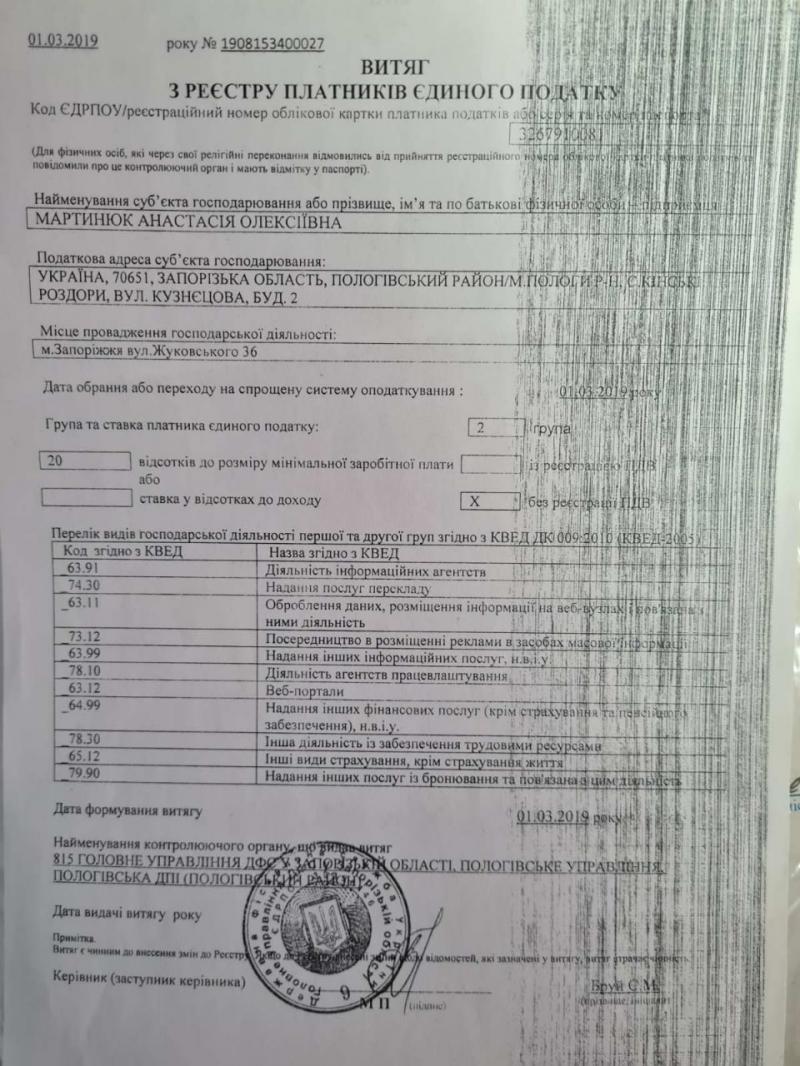 01.03.2019 року № 1908153400027
ВИТЯГ
З РЕЄСТРУ ПЛАТНИКІВ ЄДИНОГО ПОДАТКУ
Код ЄДРПОУ/реєстраційний номер облікової картки платника податків або серія та номер паспорта
3267910081
(Для фізичних осіб, які через свої релігійні переконання відмовились від прийняття реєстраційного номера облікової картки платника податків та
повідомили про це контролюючий орган і мають відмітку у паспорті).
Найменування суб'єкта господарювання або прізвище, ім'я та по батькові фізичної особи – підприємця
МАРТИНЮК АНАСТАСІЯ ОЛЕКСІЇВНА
Податкова адреса суб'єкта господарювання:
УКРАЇНА, 70651, ЗАПОРІЗЬКА ОБЛАСТЬ, ПОЛОГІВСЬКИЙ РАЙОН/М.ПОЛОГИ Р-Н, С.КІНСЬКІ
РОЗДОРИ, ВУЛ. КУЗНЄЦОВА, БУД. 2
Місце провадження господарської діяльності:
м.Запоріжжя вул.Жуковського 36
Дата обрання або переходу на спрощену систему оподаткування : 01.03.2019 року
Група та ставка платника єдиного податку: 2 група
20 відсотків до розміру мінімальної заробітної плати із реєстрацією ПДВ
або
ставка у відсотках до доходу X без реєстрації ПДВ
Перелік видів господарської діяльності першої та другої груп згідно з КВЕД ДК 009:2010 (КВЕД-2005)
Код згідно з КВЕД Назва згідно з КВЕД
_63.91 Діяльність інформаційних агентств
_74.30 Надання послуг перекладу
_63.11 Оброблення даних, розміщення інформації на веб-вузлах і пов'язана з
ними діяльність
_73.12 Посередництво в розміщенні реклами в засобах масової інформації
_63.99 Надання інших інформаційних послуг, н.в.і.у.
_78.10 Діяльність агентств працевлаштування
_63.12 Веб-портали
_64.99 Надання інших фінансових послуг (крім страхування та пенсійного
забезпечення), н.в.і.у.
_78.30 Інша діяльність із забезпечення трудовими ресурсами
_65.12 Інші види страхування, крім страхування життя
_79.90 Надання інших послуг із бронювання та пов'язана з цим діяльність
Дата формування витягу 01.03.2019 року
Найменування контролюючого органу, що видав витяг
815 ГОЛОВНЕ УПРАВЛІННЯ ДФС У ЗАПОРІЗЬКІЙ ОБЛАСТІ, ПОЛОГІВСЬКЕ УПРАВЛІННЯ,
ПОЛОГІВСЬКА ДПІ (ПОЛОГІВСЬКИЙ РАЙОН)
Дата видачі витягу року
Примітка.
Витяг є чинним до внесення змін до Реєстру. Якщо до відомостей, які зазначені у витягу, витяг втрачає чинність.
Керівник (заступник керівника) Бруй С.М.
М П (підпис) (прізвище, ініціали)